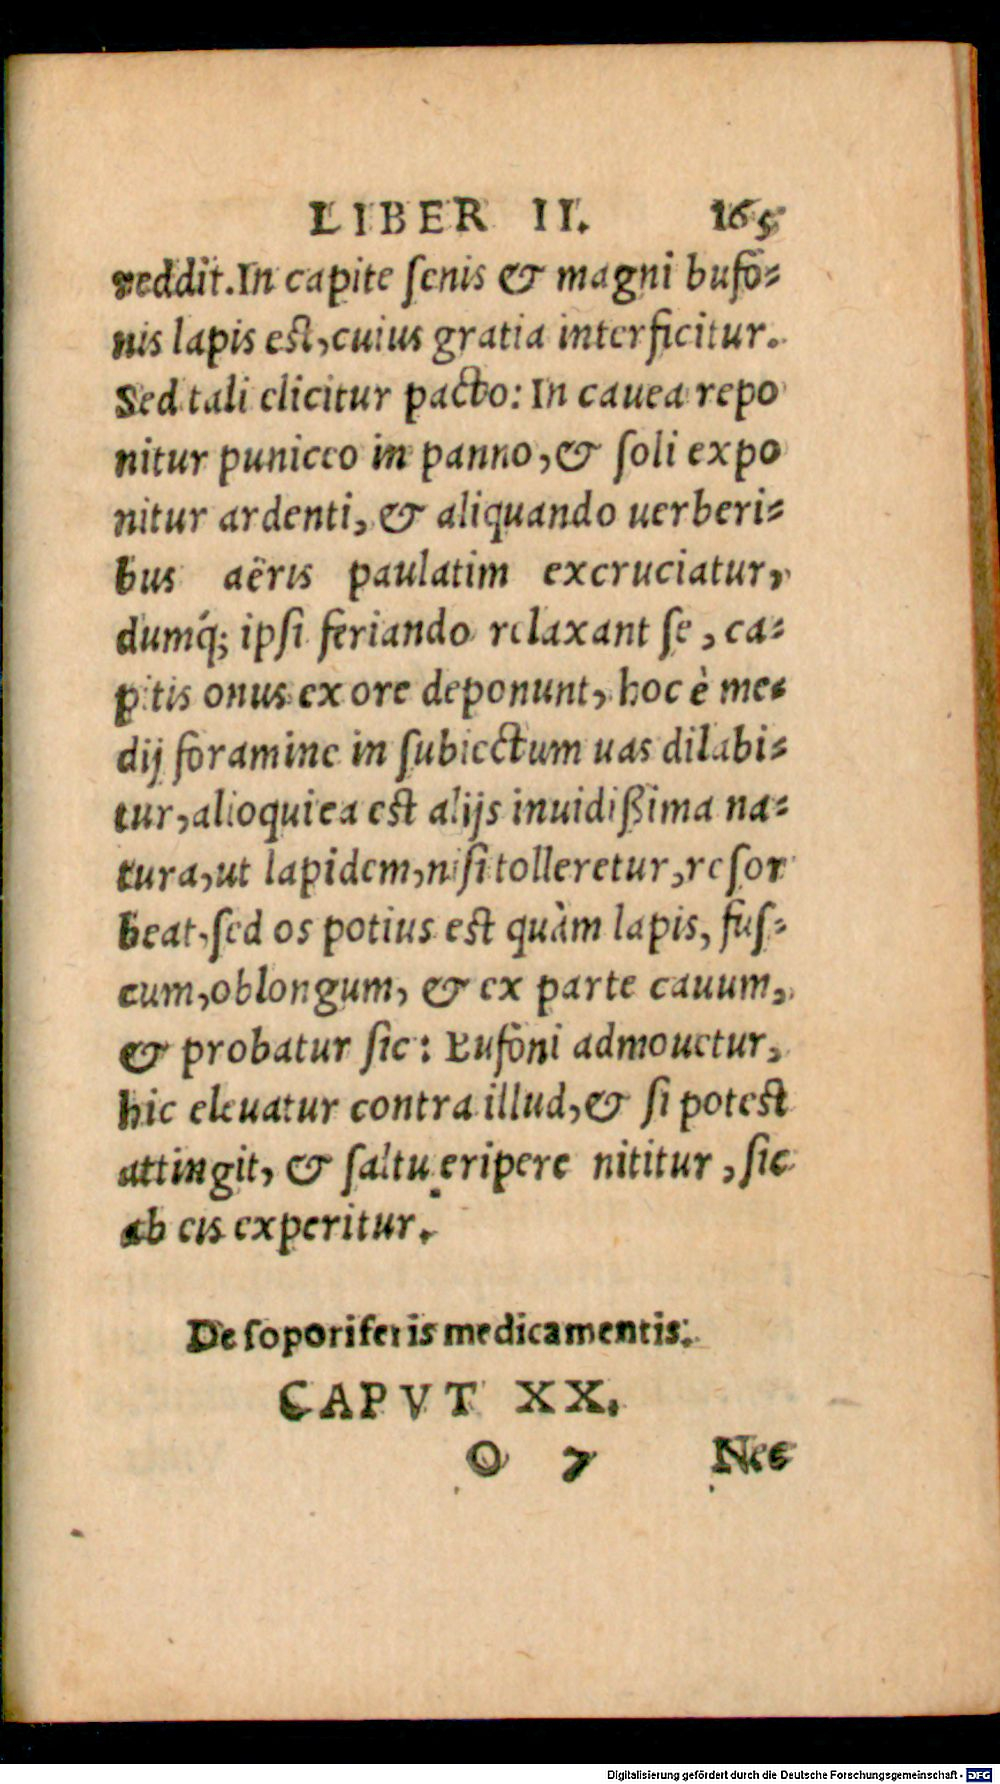 LIBER II. 165
reddit. In capite ſenis & magni bufo-
nis lapis eſt, cuius gratia interficitur.
Sed tali elicitur pacto: In cauea repo
nitur puniceo in panno, & ſoli expo
nitur ardenti, & aliquando uerberi-
bus aëris paulatim excruciatur,
dumq́; ipſi feriando relaxant ſe, ca-
pitis onus ex ore deponunt, hoc è me-
dij foramine in ſubiectum uas dilabi-
tur, alioqui ea eſt alijs inuidißima na-
tura, ut lapidem, niſi tolleretur, reſor
beat, ſed os potius eſt quàm lapis, fuſ-
cum, oblongum, & ex parte cauum,
& probatur ſic: Bufoni admouetur,
hic eleuatur contra illud, & ſi poteſt
attingit, & ſaltu eripere nititur, ſic
ab eis experitur.
De ſoporiferis medicamentis.
CAPVT XX.
O 7 Nec
Digitalisierung gefördert durch die Deutsche Forschungsgemeinschaft - DFG